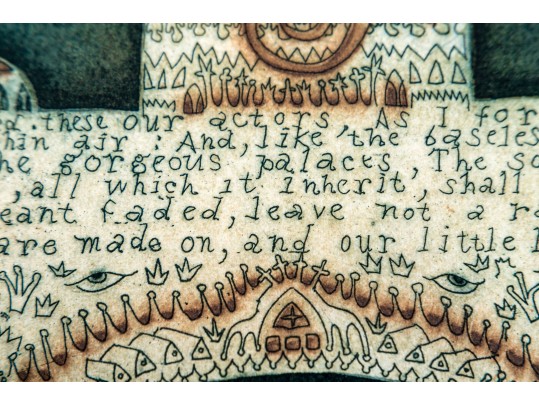 d. these our actors As I for
hin air : And, like the baseles
he gorgeous palaces, The so
, all which it inherit, shall
eant faded, leave not a ra
are made on, and our little l